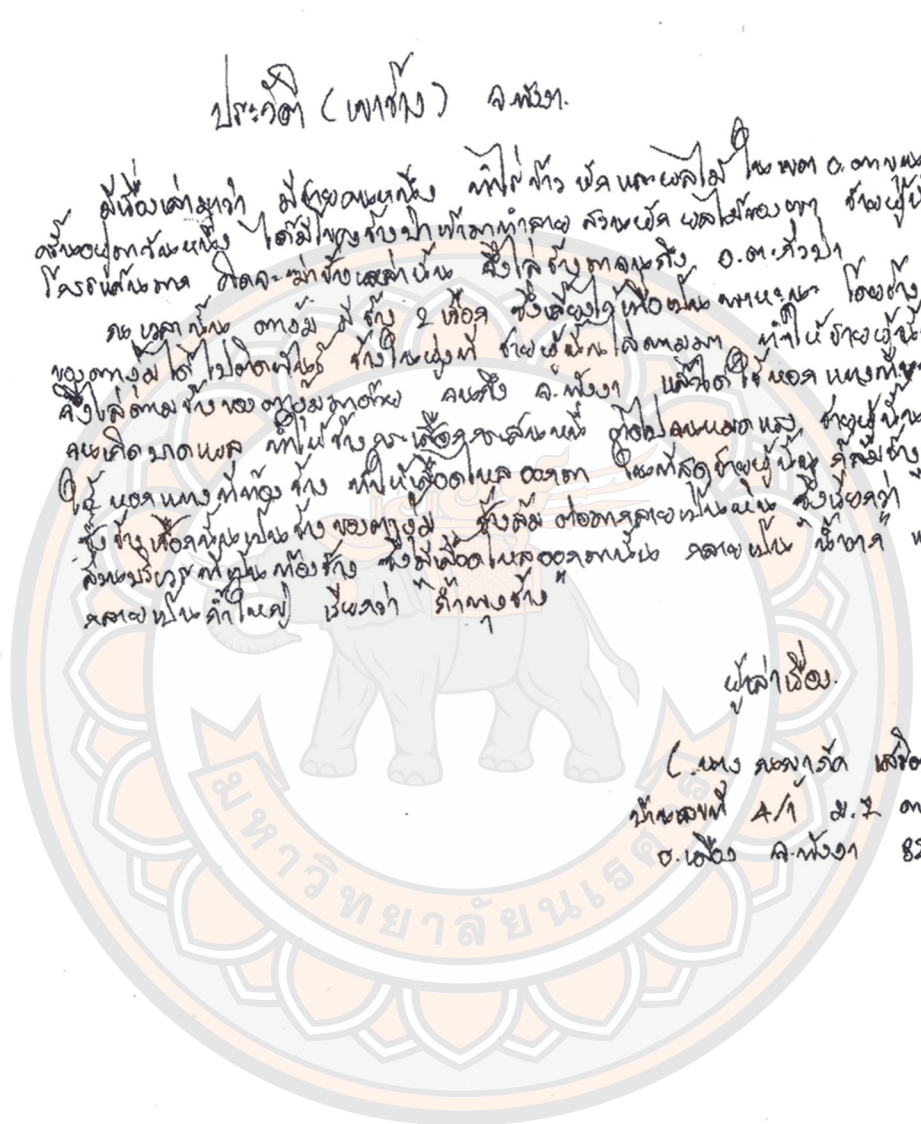 ประวัติ (เขาช้าง) จ.พังงา.
มีเรื่องเล่ามาว่า มีชายคนหนึ่ง ทำไร่ข้าว ผักและผลไม้ ในเขต อ.
ครั้นอยู่มาวันหนึ่ง ได้มีโขลงช้างป่าเข้ามาทำลาย สวนผัก ผลไม้ของเขา ชายผู้
โกรธแค้นมาก คิดจะฆ่าช้างเหล่านั้น จึงไล่ช้างมาจนถึง อ.ตะกั่วป่า
ณ เวลานั้น ตางุ้ม มีช้าง 2 เชือก ซึ่งเลี้ยงไว้เพื่อเป็นพาหนะ โดยช้าง
ของตางุ้มได้ไปติดพันธุ์ ช้างในฝูงที่ ชายผู้นั้นไล่ตามมา ทำให้ชายผู้นั้
จึงไล่ตามช้างของตางุ้มมาด้วย จนถึง จ.พังงา แล้วได้ใช้หอกแทงที่
จนเกิดบาดแผล ทำให้ช้างกระเสือกกระสนหนี ต่อไปจนหมดแรง ชายผู้นั้น
ใช้ หอกแทงที่ท้องช้าง ทำให้เลือดไหลออกมา ในที่สุดชายผู้นั้น ก็ล้มช้าง
ซึ่งช้างเชือกนั้นเป็นช้างของตางุ้ม ช้างล้ม ต่อมากลายเป็นหิน ซึ่งเรียกว่า
ส่วนบริเวณที่เป็นท้องช้าง ซึ่งมีเลือดไหลออกมานั้น กลายเป็น น้ำตก
กลายเป็นถ้ำใหญ่ เรียกว่า "ถ้ำพุงช้าง"
ผู้เล่าเรื่อง.
(นาง
บ้านเลขที่ 4/1 ม.7
อ.เมือง จ.พังงา 82
มหาวิทยาลัยนเรศวร